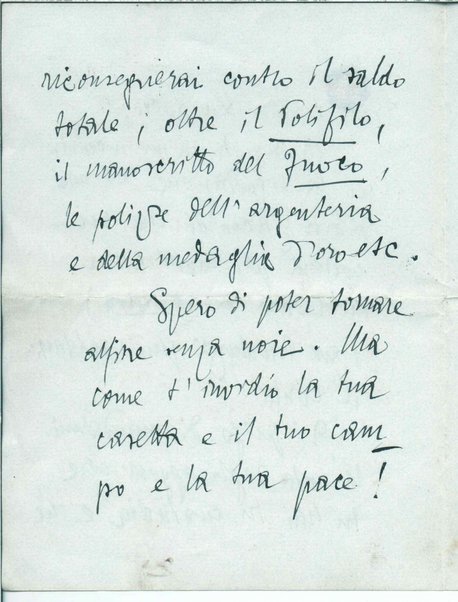 riconsegnerai contro il saldo
totale; oltre il Polifilo,
il manoscritto del Fuoco,
le polizze dell'argenteria
e della medaglia d'oro etc.
Spero di poter tornare
alfine senza noie. Ma
come t'invidio la tua
casetta e il tuo cam
po e la tua pace!